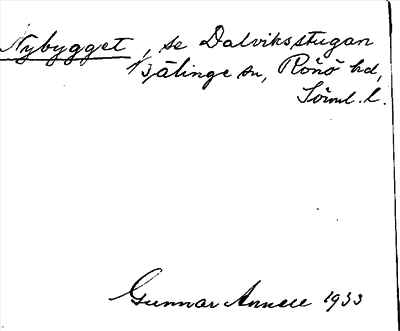 Nybygget, se Dalviksstugan
Bälinge sn, Rönö hd,
Söml. l.
Gunnar Annell 1933